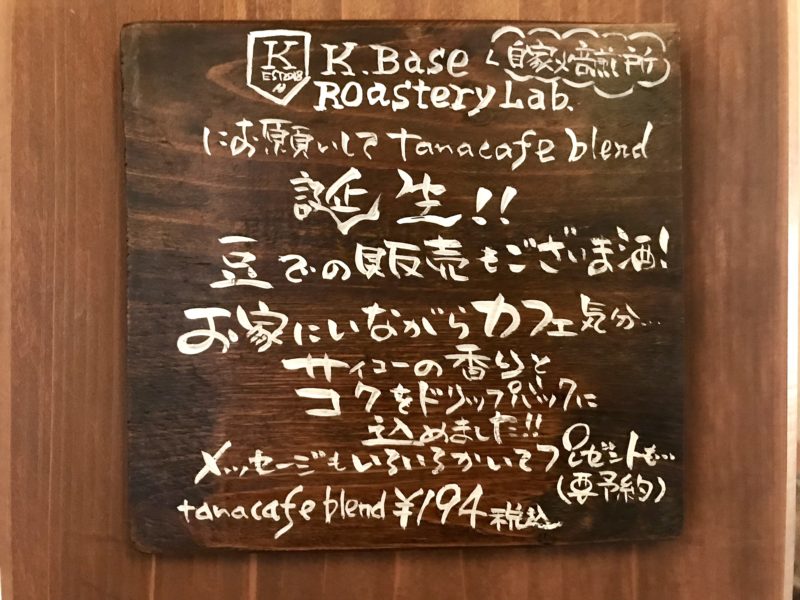 K
EST2018
K.Base
自家焙煎所
Roastery Lab.
にお願いして tanacafe blend
誕生!!
豆での販売もございま酒!
お家にいながらカフェ気分…
サイコーの香りと
コクをドリップバックに
込めました!!
メッセージもいろいろかいてプレゼントも…
(要予約)
tanacafe blend ¥194 税込